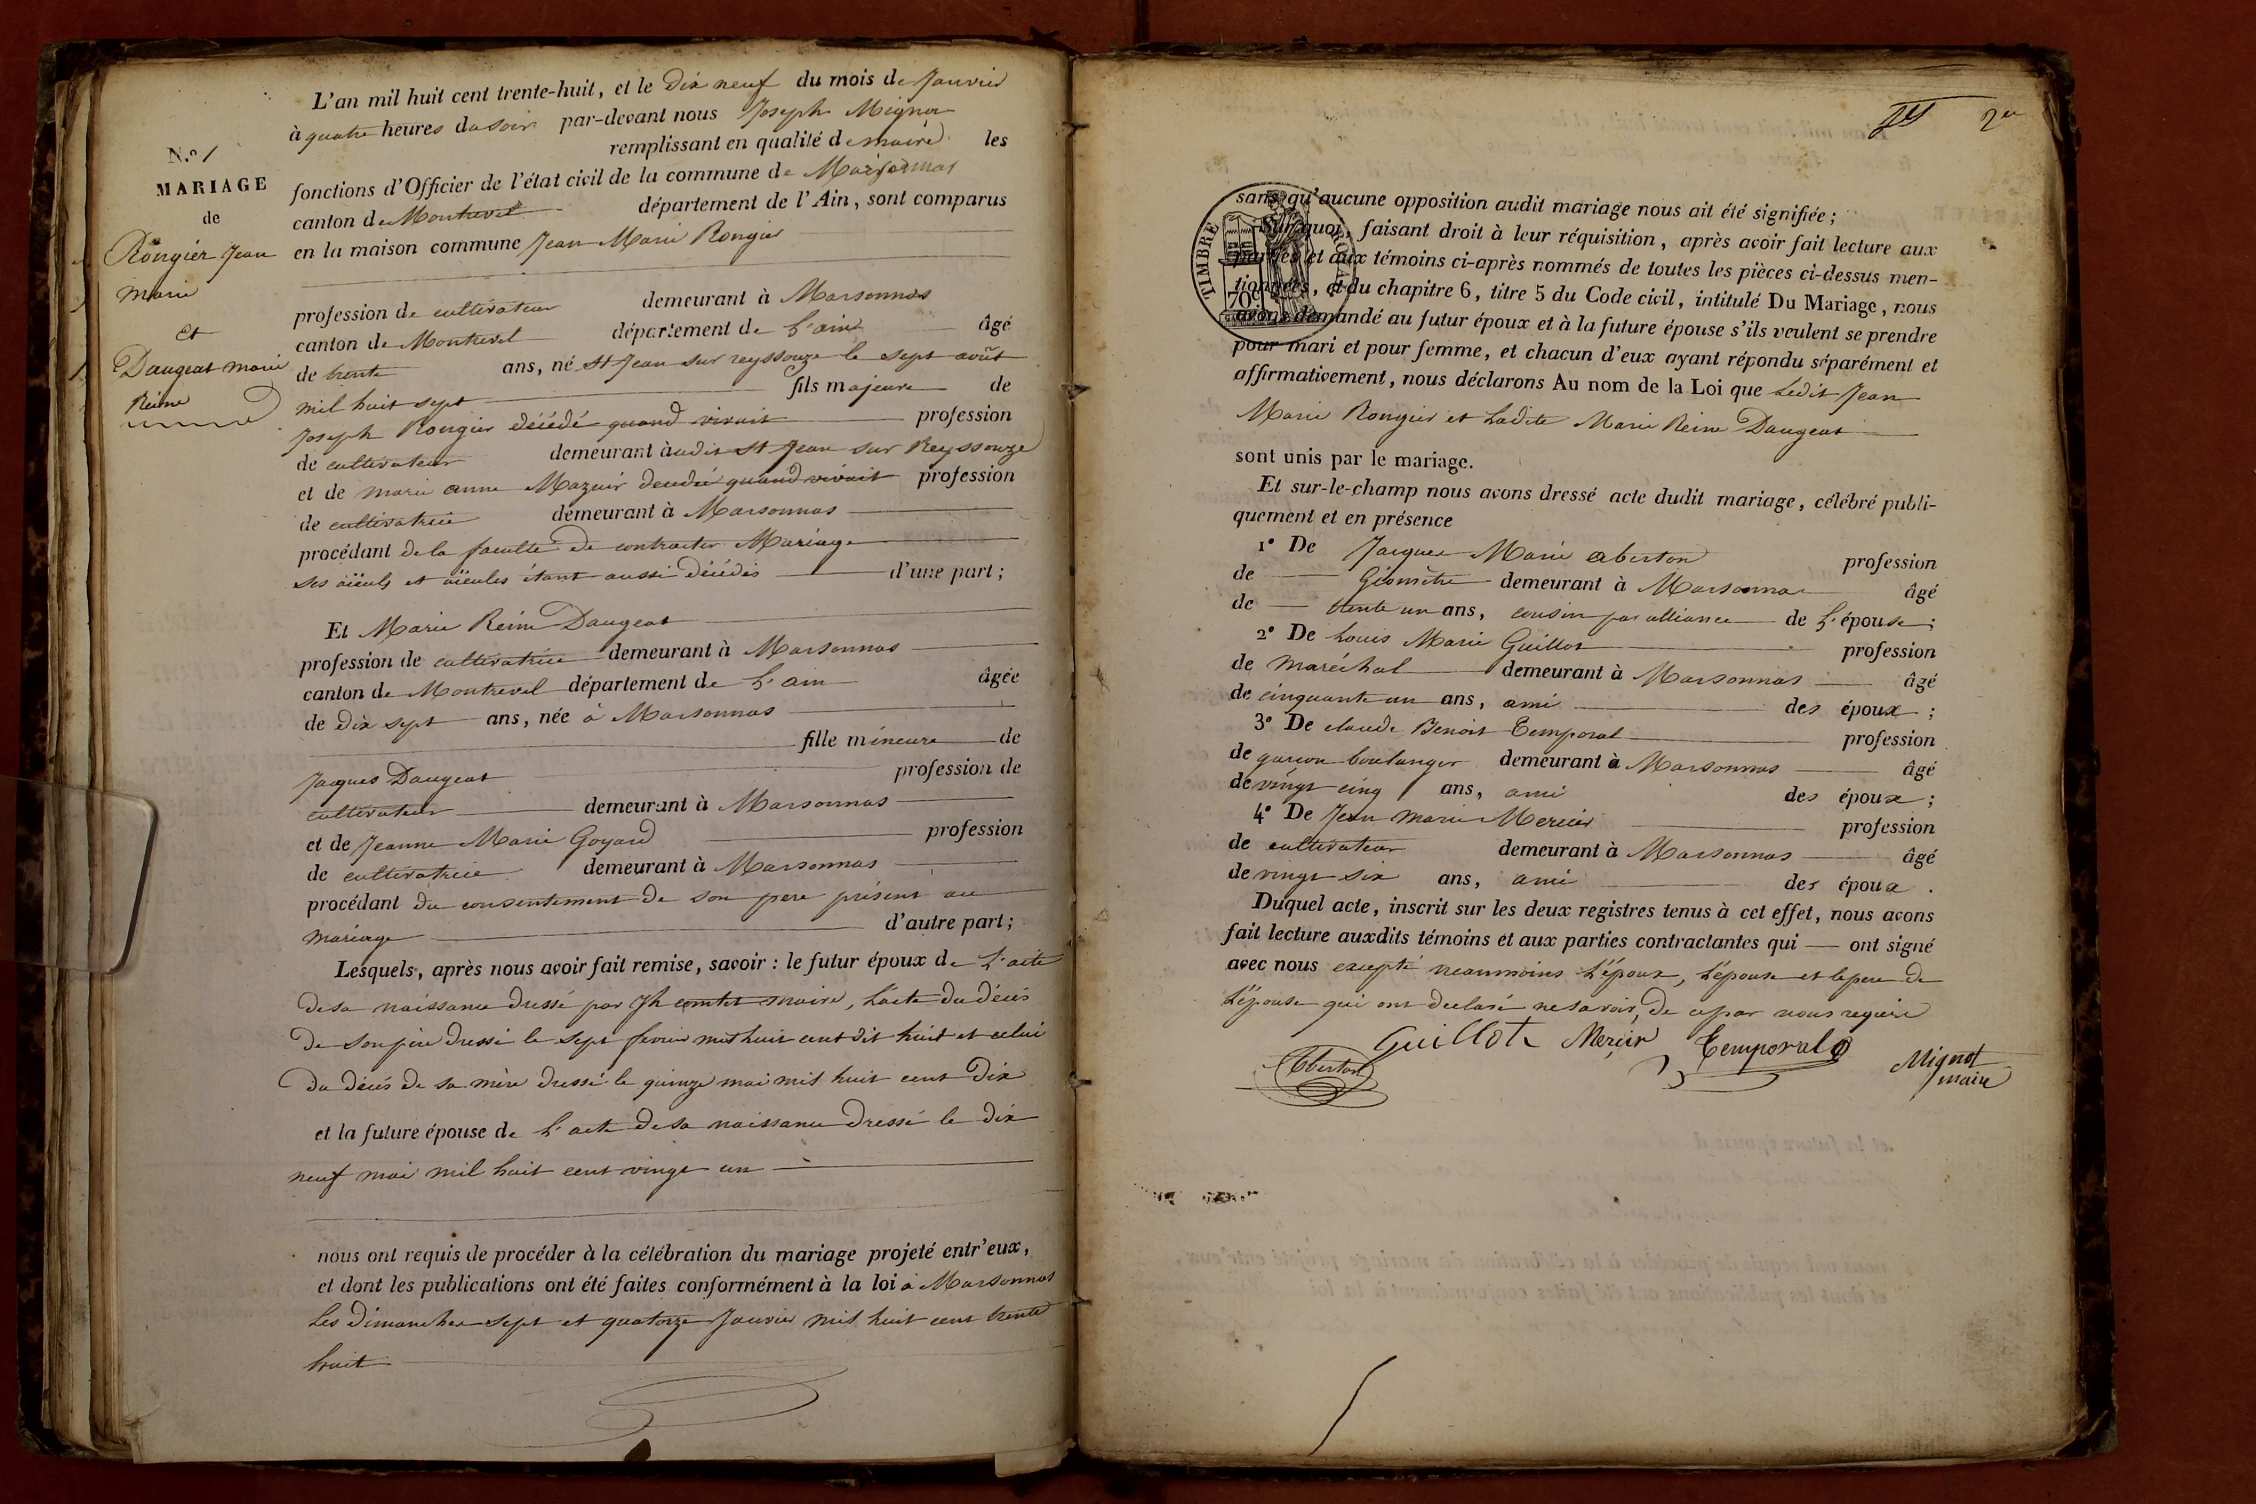 N.º 1
MARIAGE
de
Rongier Jean
Marie
et
Daugeat marie
Reine
L'an mil huit cent trente-huit, et le dix neuf du mois de Janvier
à quatre heures du soir par-devant nous Joseph Mignot
remplissant en qualité de maire les
fonctions d'Officier de l'état civil de la commune de Marsonnas
canton de Montrevel département de l'Ain, sont comparus
en la maison commune Jean Marie Rongier
profession de cultivateur demeurant à Marsonnas
canton de Montrevel département de L'ain âgé
de trente ans, né St Jean sur reyssouze le sept août
mil huit sept fils majeure de
Joseph Rongier décédé quand vivait profession
de cultivateur demeurant audit St Jean sur Reyssouze
et de marie anne Mazuir décédée quand vivait profession
de cultivatrice demeurant à Marsonnas
procédant de la faculté de contracter Mariage
ses aïeuls et aïeules étant aussi décédés d'une part;
Et Marie Reine Daugeat
profession de cultivatrice demeurant à Marsonnas
canton de Montrevel département de L'ain âgée
de dix sept ans, née à Marsonnas
fille mineure de
Jaques Daugeat profession de
cultivateur demeurant à Marsonnas
et de Jeanne Marie Goyard profession
de cultivatrice demeurant à Marsonnas
procédant du consentement de son pere présent au
mariage d'autre part;
Lesquels, après nous avoir fait remise, savoir : le futur époux de L'acte
de sa naissance dressé par Jh comtet maire, L'acte du décés
de son père dressé le sept fevrier mil huit cent dix huit et celui
du décés de sa mère dressé le quinze mai mil huit cent dix
et la future épouse de L'acte de sa naissance dressé le dix
neuf mai mil huit cent vingt un
nous ont requis de procéder à la célébration du mariage projeté entr'eux,
et dont les publications ont été faites conformément à la loi à Marsonnas
Les dimanches sept et quatorze Janvier mil huit cent trente
huit
2e
TIMBRE ROYAL
70c
sans qu'aucune opposition audit mariage nous ait été signifiée;
Sur quoi, faisant droit à leur réquisition, après avoir fait lecture aux
parties et aux témoins ci-après nommés de toutes les pièces ci-dessus men-
tionnées, et du chapitre 6, titre 5 du Code civil, intitulé Du Mariage, nous
avons demandé au futur époux et à la future épouse s'ils veulent se prendre
pour mari et pour femme, et chacun d'eux ayant répondu séparément et
affirmativement, nous déclarons Au nom de la Loi que Ledit Jean
Marie Rongier et Ladite Marie Reine Daugeat
sont unis par le mariage.
Et sur-le-champ nous avons dressé acte dudit mariage, célébré publi-
quement et en présence
1º De Jacques Marie aberton profession
de Géomètre demeurant à Marsonnas âgé
de trente un ans, cousin par alliance de L'épouse;
2º De Louis Marie Guillot profession
de Maréchal demeurant à Marsonnas âgé
de cinquante un ans, ami des époux;
3º De claude Benoit Temporal profession
de garcon boulanger demeurant à Marsonnas âgé
de vingt cinq ans, ami des époux;
4º De Jean Marie Mercier profession
de cultivateur demeurant à Marsonnas âgé
de vingt six ans, ami des époux.
Duquel acte, inscrit sur les deux registres tenus à cet effet, nous avons
fait lecture auxdits témoins et aux parties contractantes qui ont signé
avec nous excepté neanmoins L'époux, L'épouse et le pere de
L'épouse qui ont declaré ne savoir, de ce par nous requis
Guillot Mercier Temporal
Aberton Mignot
maire